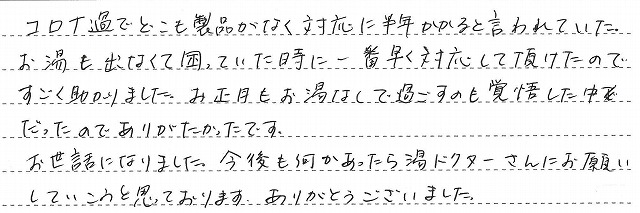 コロナ過でどこも製品がなく対応に半年かかると言われていた。
お湯も出なくて困っていた時に一番早く対応して頂けたので
すごく助かりました。お正月もお湯なしで過ごすのも覚悟した中
だったのでありがたかったです。
お世話になりました。今後も何かあったら湯ドクターさんにお願い
していこうと思っております。ありがとうございました。